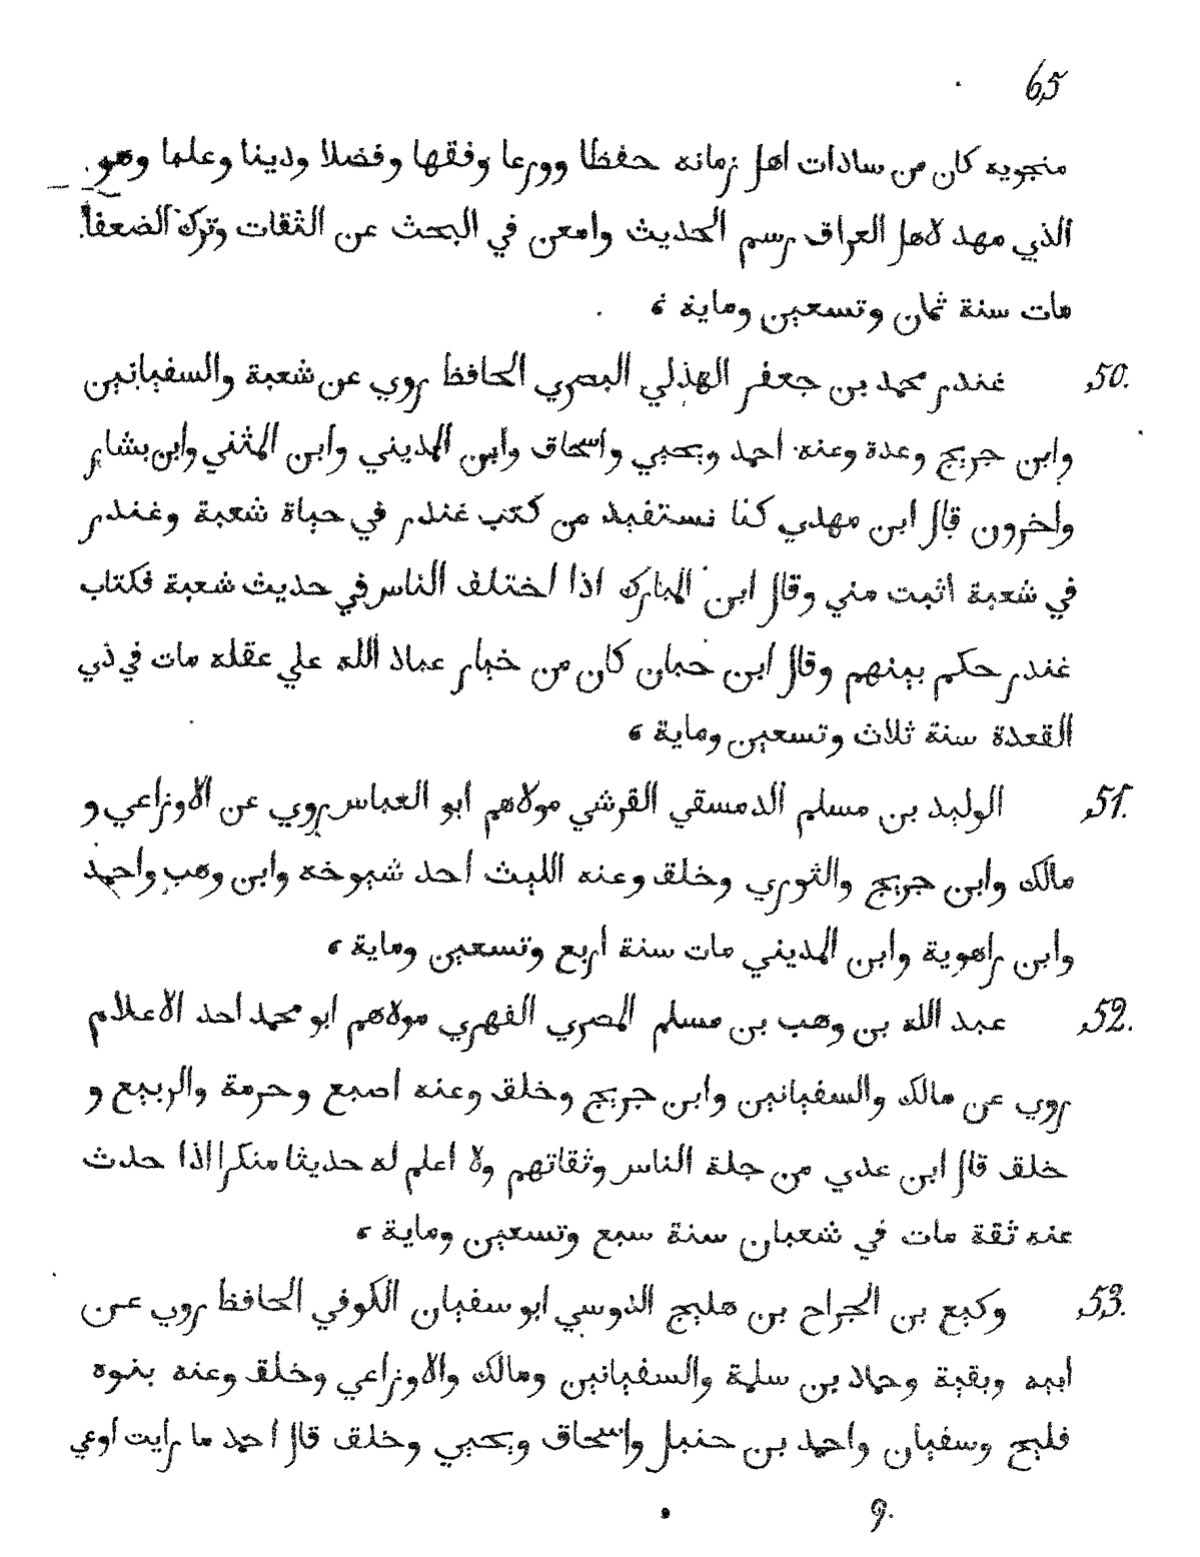 65
منجويه كان من سادات اهل زمانه حفظا وورعا وفقها وفضلا ودينا وعلما وهو
الذي مهد لاهل العراق رسم الحديث وامعن في البحث عن الثقات وترك الضعفا
مات سنة ثمان وتسعين وماية ،
50. غندر محمد بن جعفر الهذلي البصري الحافظ روي عن شعبة والسفيانين
وابن جريج وعدة وعنه احمد ويحيي واسحاق وابن المديني وابن المثني وابن بشار
واخرون قال ابن مهدي كنا نستفيد من كتب غندر في حياة شعبة وغندر
في شعبة اثبت مني وقال ابن المبارك اذا اختلف الناس في حديث شعبة فكتاب
غندر حكم بينهم وقال ابن حبان كان من خيار عباد الله علي عقله مات في ذي
القعدة سنة ثلاث وتسعين وماية ،
51. الوليد بن مسلم الدمسقي القرشي مولاهم ابو العباس روي عن الاوزاعي و
مالك وابن جريج والثوري وخلق وعنه الليث احد شيوخه وابن وهب واحمد
وابن راهوية وابن المديني مات سنة اربع وتسعين وماية ،
52. عبد الله بن وهب بن مسلم المصري الفهري مولاهم ابو محمد احد الاعلام
روي عن مالك والسفيانين وابن جريج وخلق وعنه اصبع وحرمة والربيع و
خلق قال ابن عدي من جلة الناس وثقاتهم ولا اعلم له حديثا منكرا اذا حدث
عنه ثقة مات في شعبان سنة سبع وتسعين وماية ،
53. وكيع بن الجراح بن مليج الدوسي ابو سفيان الكوفي الحافظ روي عن
ابيه وبقية وحماد بن سلمة والسفيانين ومالك والاوزاعي وخلق وعنه بنوه
فليح وسفيان واحمد بن حنبل واسحاق ويحيي وخلق قال احمد ما رايت اوعي
9.